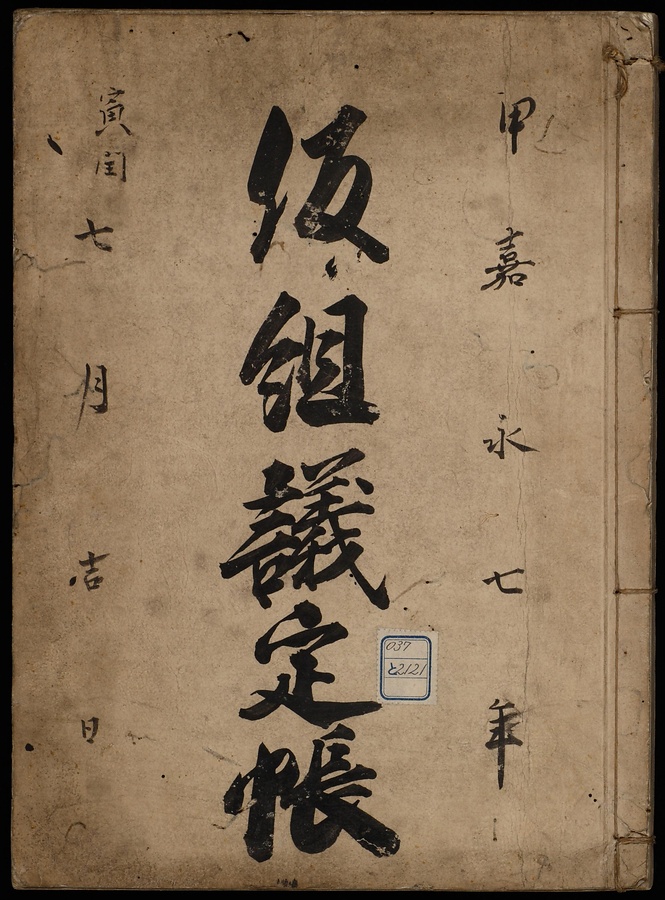 甲嘉永七年
仮組議定帳
寅閏七月吉日
037
と2121